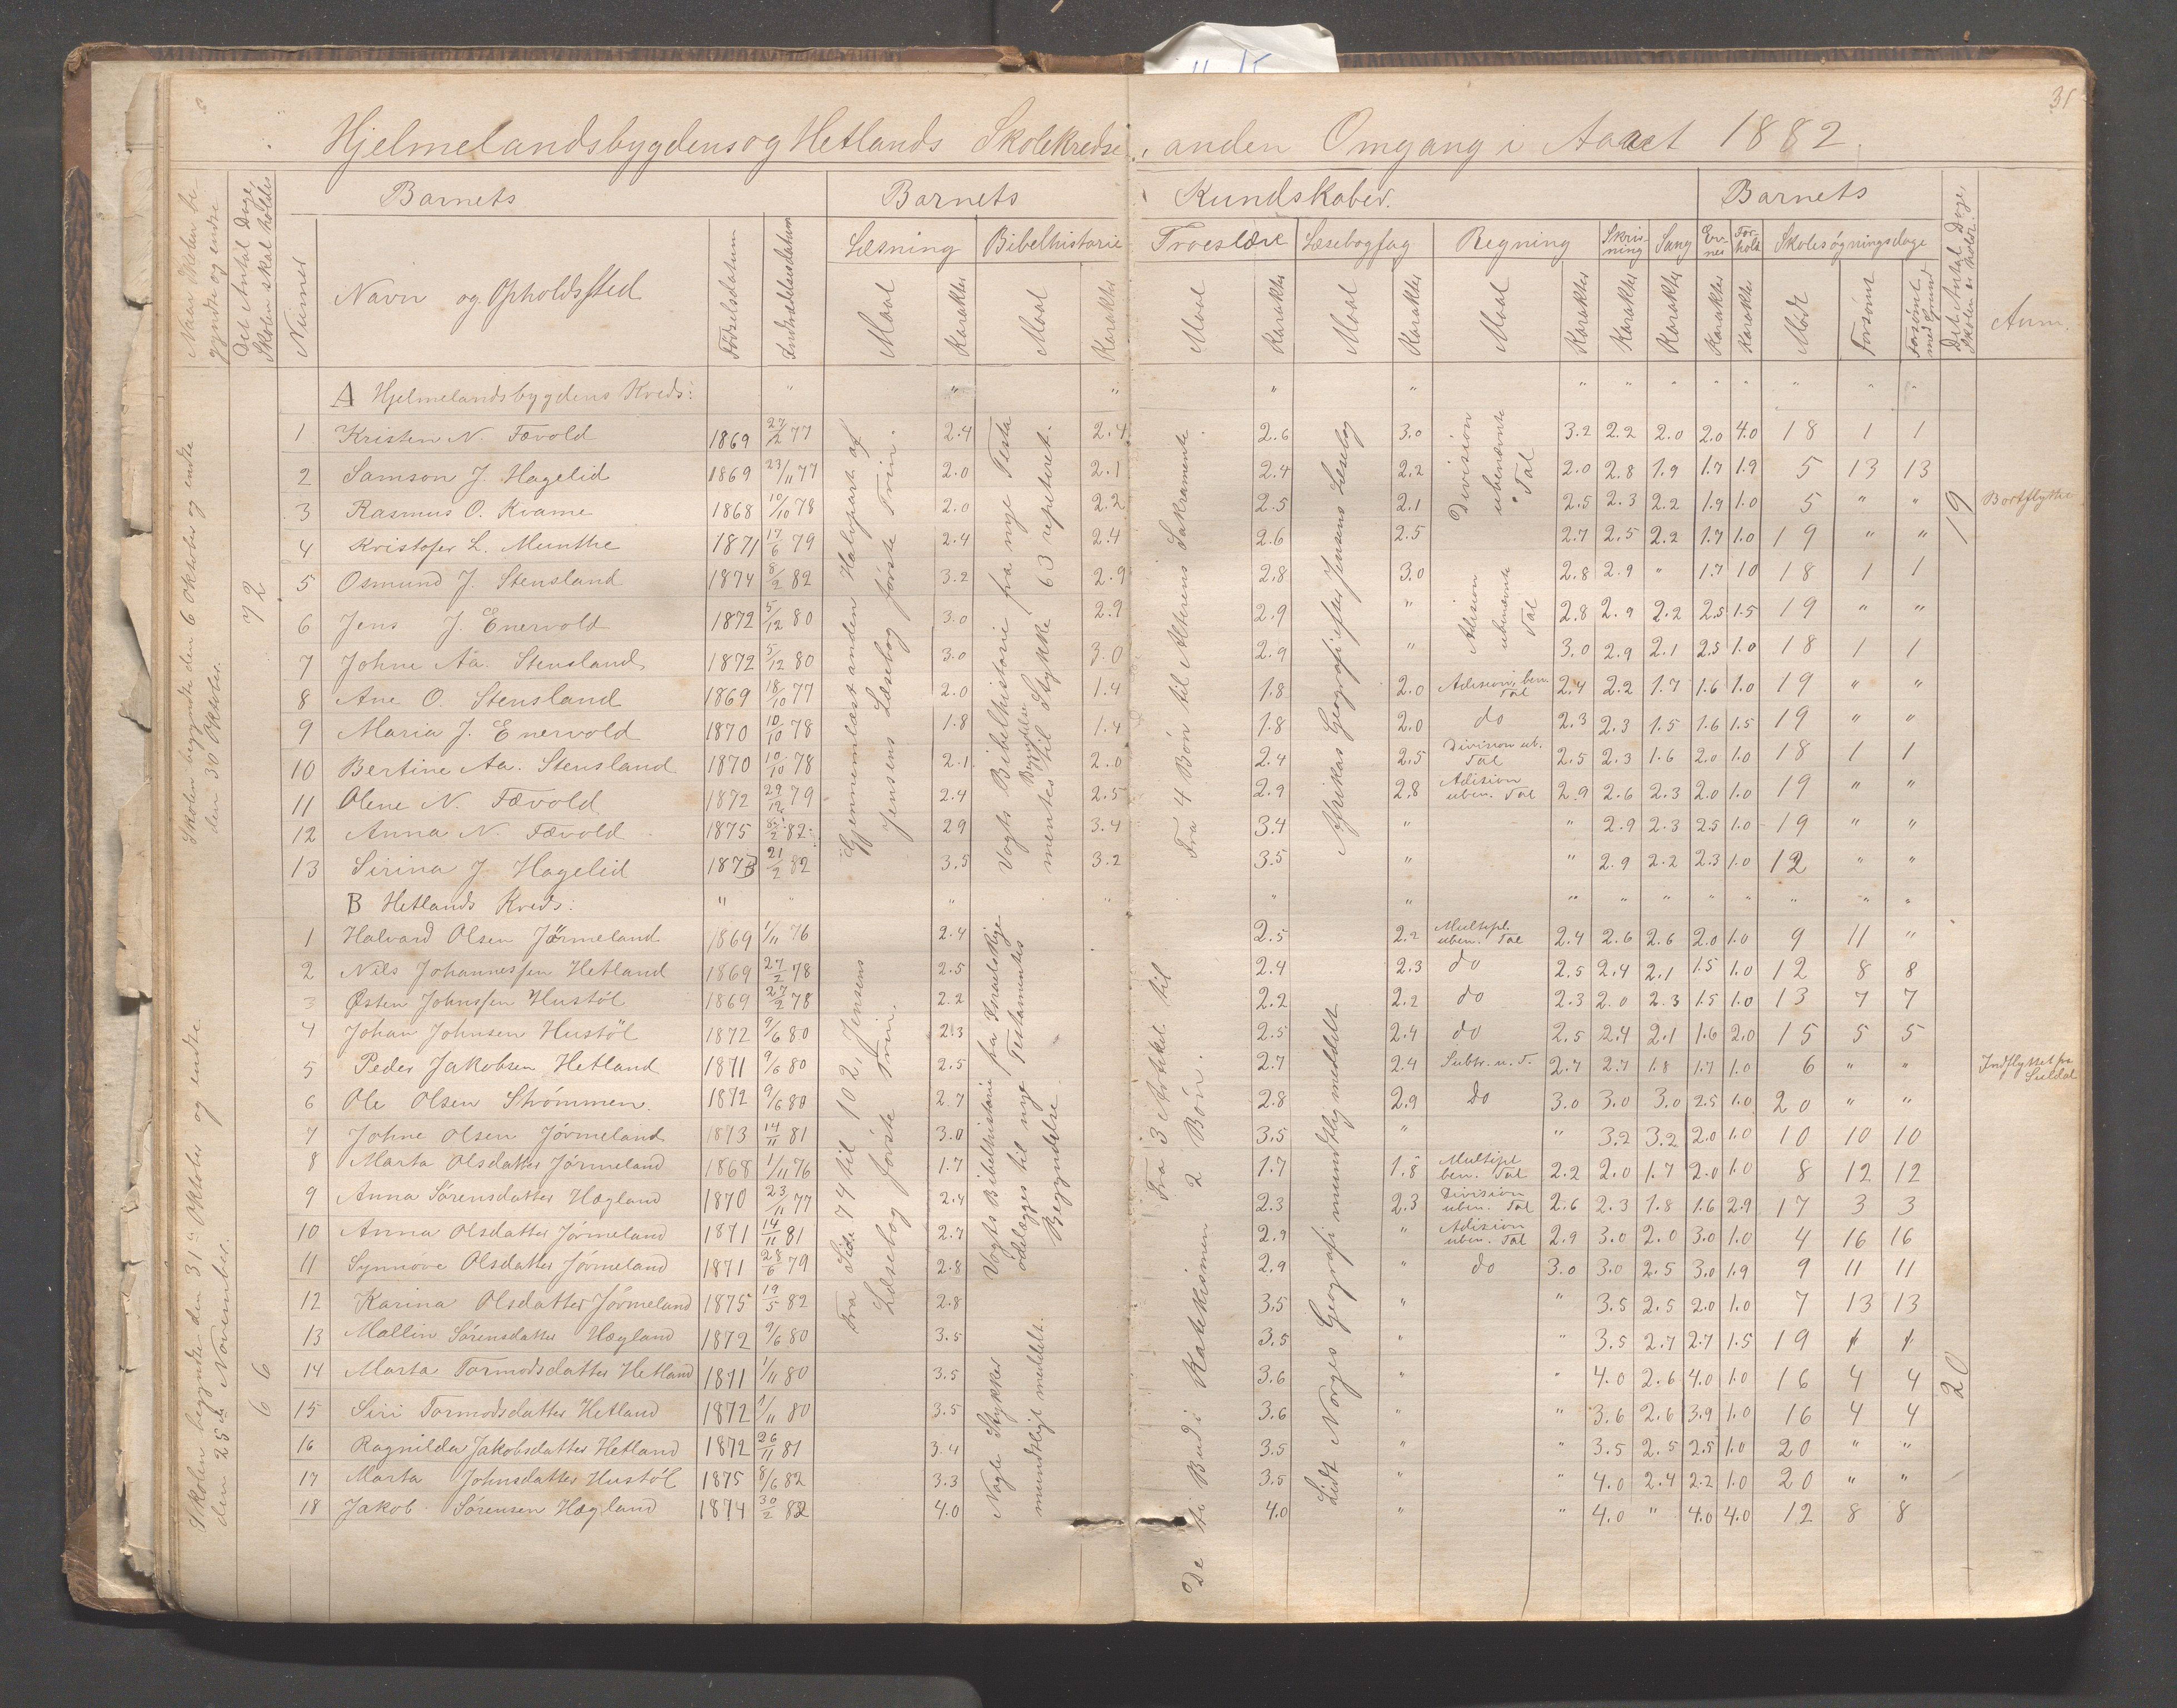 31
Hjelmelandsbygdens og Hetlands Skolekredse, anden Omgang i Aaret 1882.
Naar Skolen begyndte og endte
Det Antal Dage Skolen skal holdes
Barnets
Barnets
Kundskaber.
Barnets
Det Antal Dage Skolen er holdt.
Anm.
Nümer
Navn og Opholdssted
Fødselsdatum
Indtrædelsesdatum
Læsning
Bibelhistorie
Troeslære
Læsebogfag
Regning
Skrivning
Sang
Evner
Forhold
Skolesøgningsdage
Maal
Karakter
Maal
Karakter
Maal
Karakter
Maal
Karakter
Maal
Karakter
Karakter
Karakter
Karakter
Karakter
Mødt
Forsømt
Forsømt med Grund
Skolen begyndte den 6 Oktober og endte den 30 Oktober.
72
Gjennemlæst anden Halvpart af Jensens Læsebog første Trin.
Vogts Bibelhistorie fra nye Testamentes Begyndelse til Stykke 63 repeteret.
Fra 4 Bøn til Alterens Sakramente.
Afrikas Geografi efter Jensens Læsebog
19
A Hjelmelandsbygdens Kreds:
1 Kristen N. Fævold 1869 27/2 77 2.4 2.4 2.6 3.0 Division ubenævnte Tal 3.2 2.2 2.0 2.0 4.0 18 1 1
2 Samson J. Hagelid 1869 23/11 77 2.0 2.1 2.4 2.2 2.0 2.8 1.9 1.7 1.9 5 13 13
3 Rasmus O. Kvame 1868 10/10 78 2.0 2.2 2.5 2.1 2.5 2.3 2.2 1.9 1.0 5 " " Bortflyttet
4 Kristofer L. Munthe 1871 17/6 79 2.4 2.4 2.6 2.5 2.7 2.5 2.2 1.7 1.0 19 " "
5 Osmund J. Stensland 1874 8/2 82 3.2 2.9 2.8 3.0 Adision ubenævnte Tal 2.8 2.9 " 1.7 10 18 1 1
6 Jens J. Enervold 1872 5/12 80 3.0 2.9 2.9 " 2.8 2.9 2.2 2.5 1.5 19 " "
7 Johne Aa. Stensland 1872 5/12 80 3.0 3.0 2.9 " 3.0 2.9 2.1 2.5 1.0 18 1 1
8 Ane O. Stensland 1869 18/10 77 2.0 1.4 1.8 2.0 Adision, ben. Tal 2.4 2.2 1.7 1.6 1.0 19 " "
9 Maria J. Enervold 1870 10/10 78 1.8 1.4 1.8 2.0 do 2.3 2.3 1.5 1.6 1.5 19 " "
10 Bertine Aa. Stensland 1870 10/10 78 2.1 2.0 2.4 2.5 Division ub. Tal 2.5 2.3 1.6 2.0 1.0 18 1 1
11 Olene N. Fævold 1872 29/12 79 2.4 2.5 2.9 2.8 Adision uben. Tal 2.9 2.6 2.3 2.0 1.0 19 " "
12 Anna N. Fævold 1875 8/2 82 29 3.4 3.4 " " 2.9 2.3 2.5 1.0 19 " "
13 Sirina J. Hagelid 1873 21/2 82 3.5 3.2 3.5 " " 2.9 2.2 2.3 1.0 12 " "
B Hetlands Kreds:
Skolen begyndte den 31te Oktober og endte den 25de November.
66
Fra Side 74 til 102, Jensens Læsebog første Trin.
Vogts Bibelhistorie fra Israels Rige ødelægges til nye Testamentes Begyndelse.
Nogle Stykker mundtligt meddelt.
Fra 3 Artikel til 2 Bøn.
De ti Bud i Katekismen
Lidt Norges Geografi mundtlig meddelt
20
1 Halvard Olsen Jörmeland 1869 1/11 76 2.4 2.5 2.2 Multipl. uben. Tal 2.4 2.6 2.6 2.0 1.0 9 11 "
2 Nils Johannessen Hetland 1869 27/2 78 2.5 2.4 2.3 do 2.5 2.4 2.1 1.5 1.0 12 8 8
3 Østen Johnssen Hustøl 1869 27/2 78 2.2 2.2 2.2 do 2.3 2.0 2.3 1.5 1.0 13 7 7
4 Johan Johnsen Hustöl 1872 9/6 80 2.3 2.5 2.4 do 2.5 2.4 2.1 1.6 2.0 15 5 5
5 Peder Jakobsen Hetland 1871 9/6 80 2.5 2.7 2.4 Subtr. u. T. 2.7 2.7 1.8 1.7 1.0 6 " " Indflyttet fra Suldal
6 Ole Olsen Strømmen. 1872 9/6 80 2.7 2.8 2.9 do 3.0 3.0 3.0 2.5 1.0 20 " "
7 Johne Olsen Jörmeland 1873 14/11 81 3.0 3.5 " " 3.2 3.2 2.0 1.0 10 10 10
8 Marta Olsdatter Jörmeland 1868 1/11 76 1.7 1.7 1.8 Multipl ben. Tal 2.2 2.0 1.7 2.0 1.0 8 12 12
9 Anna Sørensdatter Hægland 1870 23/11 77 2.4 2.3 2.3 Division uben. Tal 2.6 2.3 1.8 1.6 2.9 17 3 3
10 Anna Olsdatter Jørmeland 1871 14/11 81 2.7 2.9 " Adision uben. Tal 2.9 3.0 2.0 3.0 1.0 4 16 16
11 Synnöve Olsdatter Jörmeland 1871 28/6 79 2.8 2.9 " do 3.0 3.0 2.5 3.0 1.9 9 11 11
12 Karina Olsdatter Jörmeland 1875 19/5 82 2.8 3.5 " " 3.5 2.5 2.0 1.0 7 13 13
13 Mallin Sørensdatter Hægland 1872 9/6 80 3.5 3.5 " " 3.5 2.7 2.7 1.5 19 1 1
14 Marta Tormodsdatter Hetland 1871 1/11 80 3.5 3.6 " " 4.0 2.6 4.0 1.0 16 4 4
15 Siri Tormodsdatter Hetland 1872 1/11 80 3.5 3.6 " " 3.6 2.6 3.9 1.0 16 4 4
16 Ragnilda Jakobsdatter Hetland 1872 26/11 81 3.4 3.5 " " 3.5 2.5 2.5 1.0 20 " "
17 Marta Johnsdatter Hustöl 1875 8/6 82 3.3 3.5 " " 4.0 2.4 2.2 1.0 20 " "
18 Jakob Sørensen Hægland 1874 30/2 82 4.0 4.0 " " 4.0 " 4.0 4.0 12 8 8